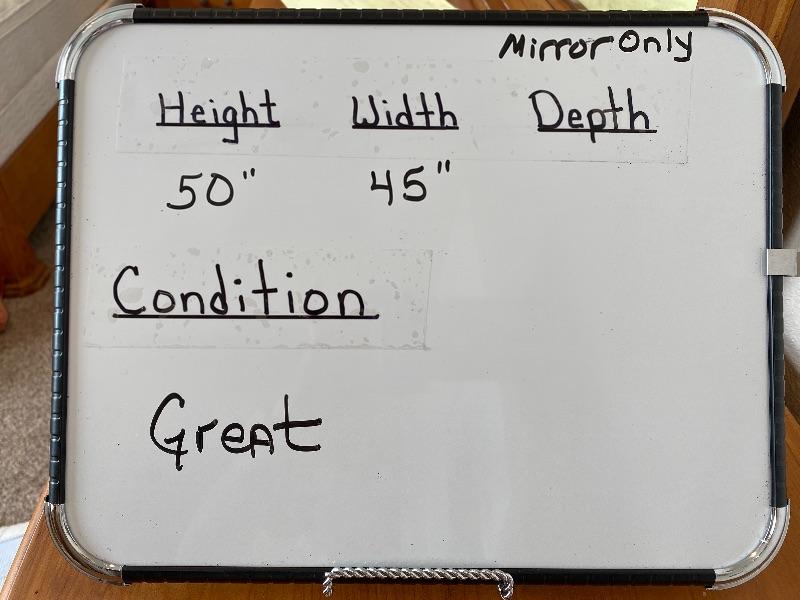 Mirror Only
Height Width Depth
50" 45"
Condition
Great